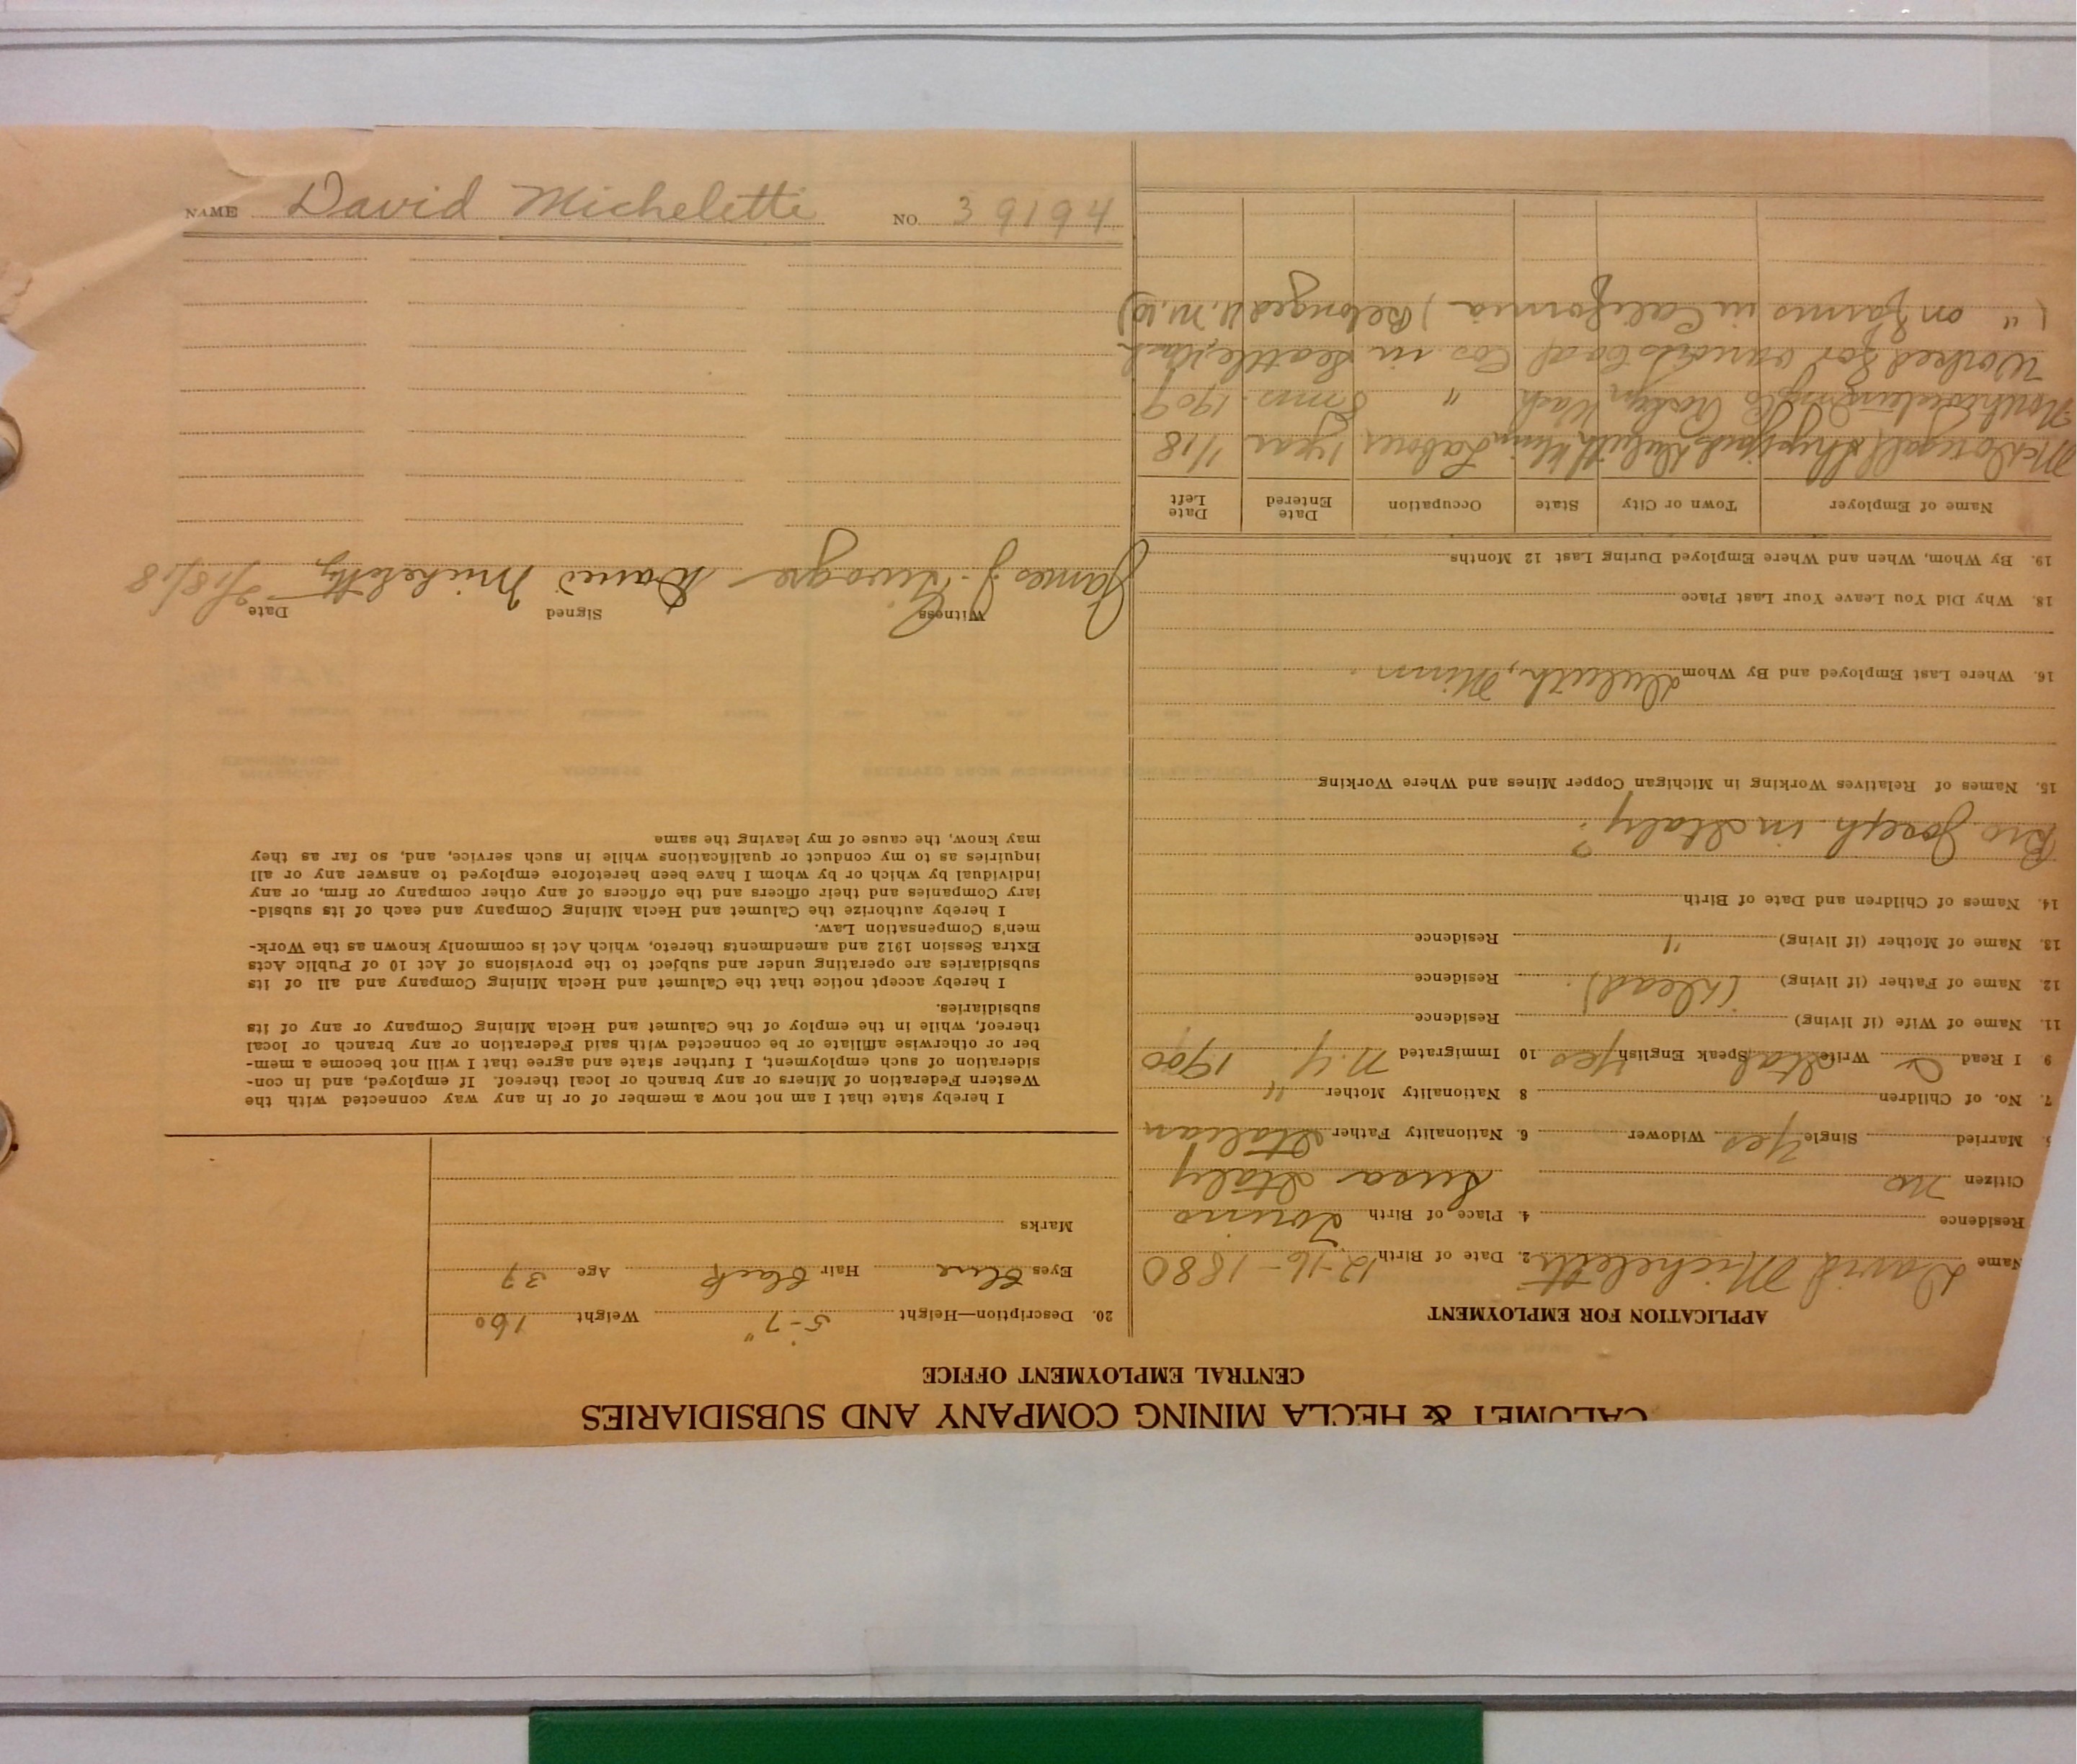 CALUMET & HECLA MINING COMPANY AND SUBSIDIARIES
CENTRAL EMPLOYMENT OFFICE
APPLICATION FOR EMPLOYMENT
Name David Micheletti 2. Date of Birth 12-16-1880
Residence 4. Place of Birth Torino
Citizen no Susa Italy
Married Single Yes Widower 6. Nationality Father Italian
7. No. of Children 8 Nationality Mother "
9 I Read & Write Ital Speak English Yes 10 Immigrated N.Y 1900
11. Name of Wife (if living) Residence
12. Name of Father (if living) (Dead) Residence
13. Name of Mother (if living) " Residence
14. Names of Children and Date of Birth
Bro. Joseph in Italy?
15. Names of Relatives Working in Michigan Copper Mines and Where Working
16. Where Last Employed and By Whom Duluth, Minn.
18. Why Did You Leave Your Last Place
19. By Whom, When and Where Employed During Last 12 Months
Name of Employer Town or City State Occupation Date Entered Date Left
McDougall Shipyards Duluth Minn Laborer 1 year 1/18
Wash " 8 mos. 1909
Worked for various Coal Cos in Seattle, Wash
( " on farms in California) (Belonged U.M.W)
20. Description—Height 5-7" Weight 160
Eyes Blue Hair Black Age 37
Marks
I hereby state that I am not now a member of or in any way connected with the
Western Federation of Miners or any branch or local thereof. If employed, and in con-
sideration of such employment, I further state and agree that I will not become a mem-
ber or otherwise affiliate or be connected with said Federation or any branch or local
thereof, while in the employ of the Calumet and Hecla Mining Company or any of its
subsidiaries.
I hereby accept notice that the Calumet and Hecla Mining Company and all of its
subsidiaries are operating under and subject to the provisions of Act 10 of Public Acts
Extra Session 1912 and amendments thereto, which Act is commonly known as the Work-
men's Compensation Law.
I hereby authorize the Calumet and Hecla Mining Company and each of its subsid-
iary Companies and their officers and the officers of any other company or firm, or any
individual by which or by whom I have been heretofore employed to answer any or all
inquiries as to my conduct or qualifications while in such service, and, so far as they
may know, the cause of my leaving the same
Witness Signed Date
James J. David Micheletti 2/18/18
NAME David Micheletti NO. 39194